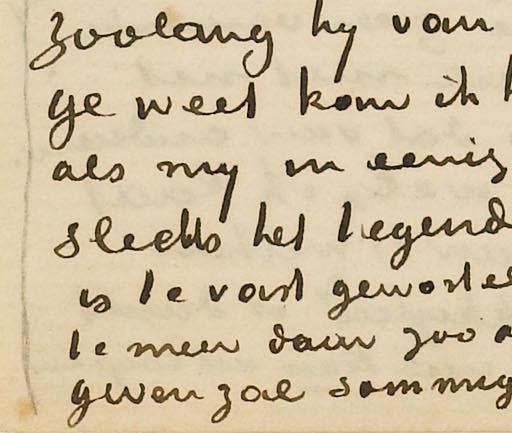 zoolang hy van
ge weet kom ik
als my in eenig
slechts het tegend
is te vast geworte
te meer daar zoo
geven zal sommig